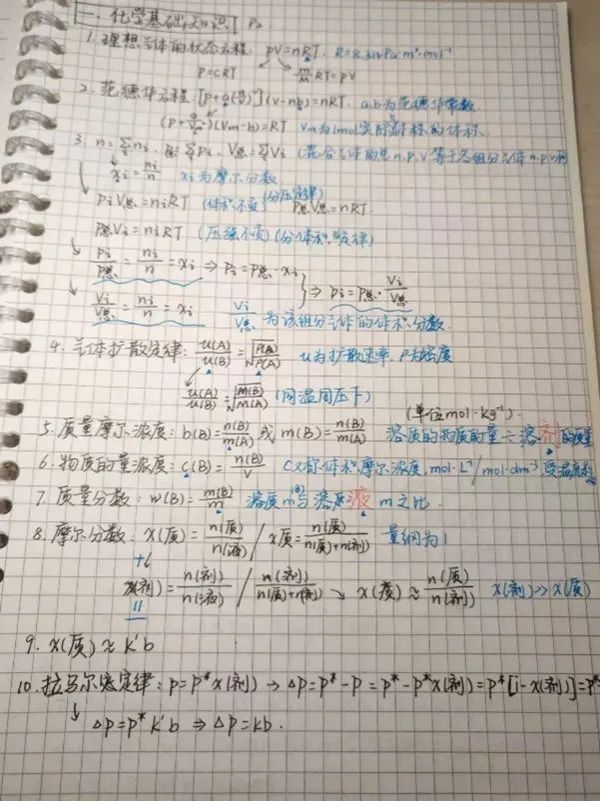 一、化学基础知识 P2
1. 理想气体的状态方程: pV=nRT. R=8.314Pa·m³·mol⁻¹
p=cRT m/M RT=pV
2. 范德华方程: [p+a(n/V)²](V-nb)=nRT. a.b为范德华常数
(p+a/Vm²)(Vm-b)=RT Vm为1mol实际气体的体积.
3. n=Σni、p总=Σpi、V总=ΣVi (混合气体的总n.p.V等于各组分气体n.p.V和)
xi=ni/n xi为摩尔分数
piV总=niRT (体积不变)(分压定律) p总V总=nRT.
p总Vi=niRT (压强不变)(分体积定律)
pi/p总=ni/n=xi ⇒ pi=p总·xi
⇒ pi=p总·Vi/V总
Vi/V总=ni/n=xi Vi/V总 为该组分气体的体积分数.
4. 气体扩散定律: u(A)/u(B)=√ρ(B)/√ρ(A) u为扩散速率. ρ为密度
u(A)/u(B)=√M(B)/√M(A) (同温同压下)
(单位mol·kg⁻¹)
5. 质量摩尔浓度: b(B)=n(B)/m(A) 或 m(B)=n(B)/m(A) 溶质的物质的量÷溶剂的质量
6. 物质的量浓度: c(B)=n(B)/V 又称体积摩尔浓度, mol·L⁻¹/mol·dm⁻³ 受温度
7. 质量分数: w(B)=m(B)/m 溶质m(B)与溶液m之比
8. 摩尔分数: x(质)=n(质)/n(液) / x质=n(质)/n(质)+n(剂) 量纲为1
+
x(剂)=n(剂)/n(液) / n(剂)/n(质)+n(剂) ↘ x(质)≈n(质)/n(剂) x(剂)>>x(质)
9. x(质)≈k'b
10. 拉乌尔定律: p=p*x(剂) → Δp=p*-p=p*-p*x(剂)=p*[1-x(剂)]=p*
Δp=p*k'b ⇒ Δp=kb.